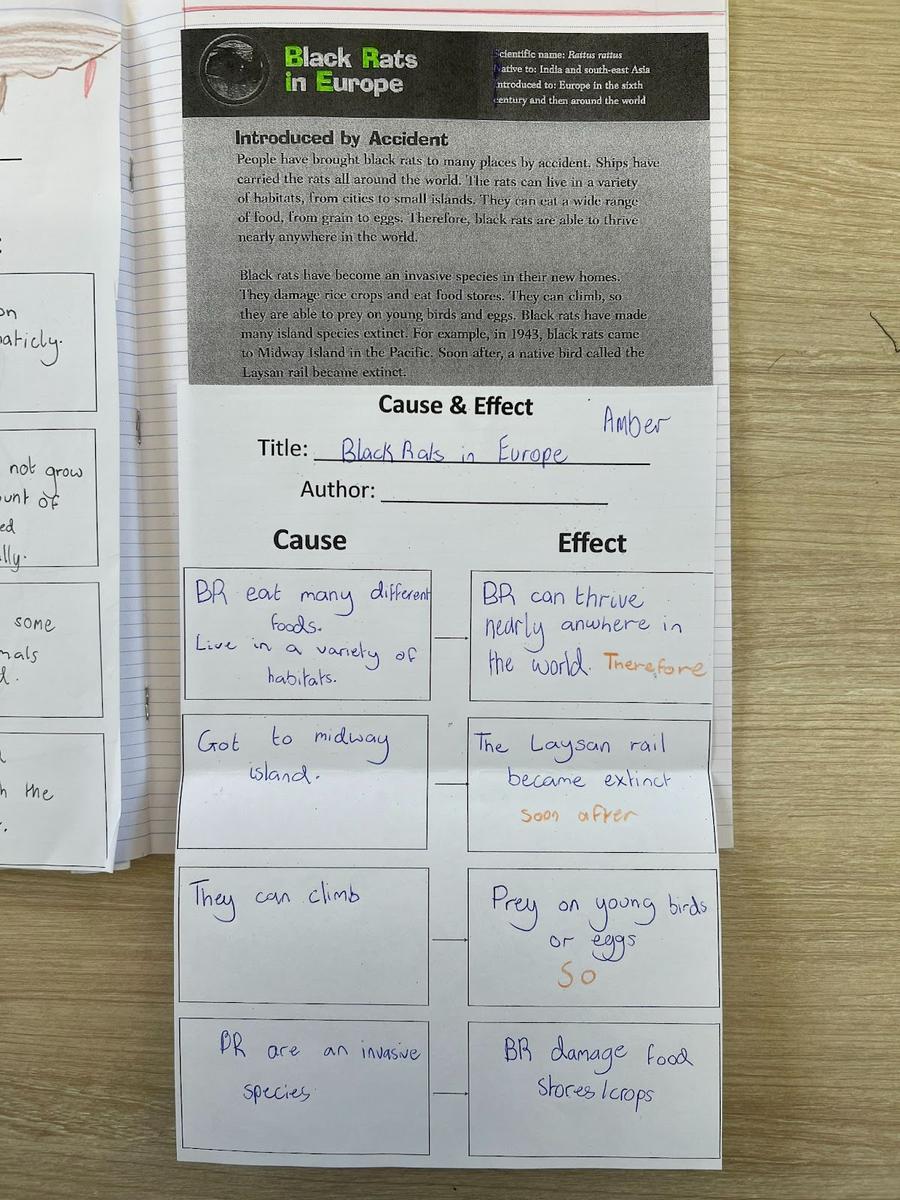 Black Rats
in Europe
Scientific name: Rattus rattus
Native to: India and south-east Asia
Introduced to: Europe in the sixth
century and then around the world
Introduced by Accident
People have brought black rats to many places by accident. Ships have
carried the rats all around the world. The rats can live in a variety
of habitats, from cities to small islands. They can eat a wide range
of food, from grain to eggs. Therefore, black rats are able to thrive
nearly anywhere in the world.
Black rats have become an invasive species in their new homes.
They damage rice crops and eat food stores. They can climb, so
they are able to prey on young birds and eggs. Black rats have made
many island species extinct. For example, in 1943, black rats came
to Midway Island in the Pacific. Soon after, a native bird called the
Laysan rail became extinct.
Cause & Effect
Amber
Title: Black Rats in Europe
Author:
Cause
Effect
BR eat many different
foods.
Live in a variety of
habitats.
BR can thrive
nearly anwhere in
the world. Therefore
Got to midway
island.
The Laysan rail
became extinct
soon after
They can climb
Prey on young birds
or eggs
So
BR are an invasive
species
BR damage food
stores/crops
not grow
of
some
the